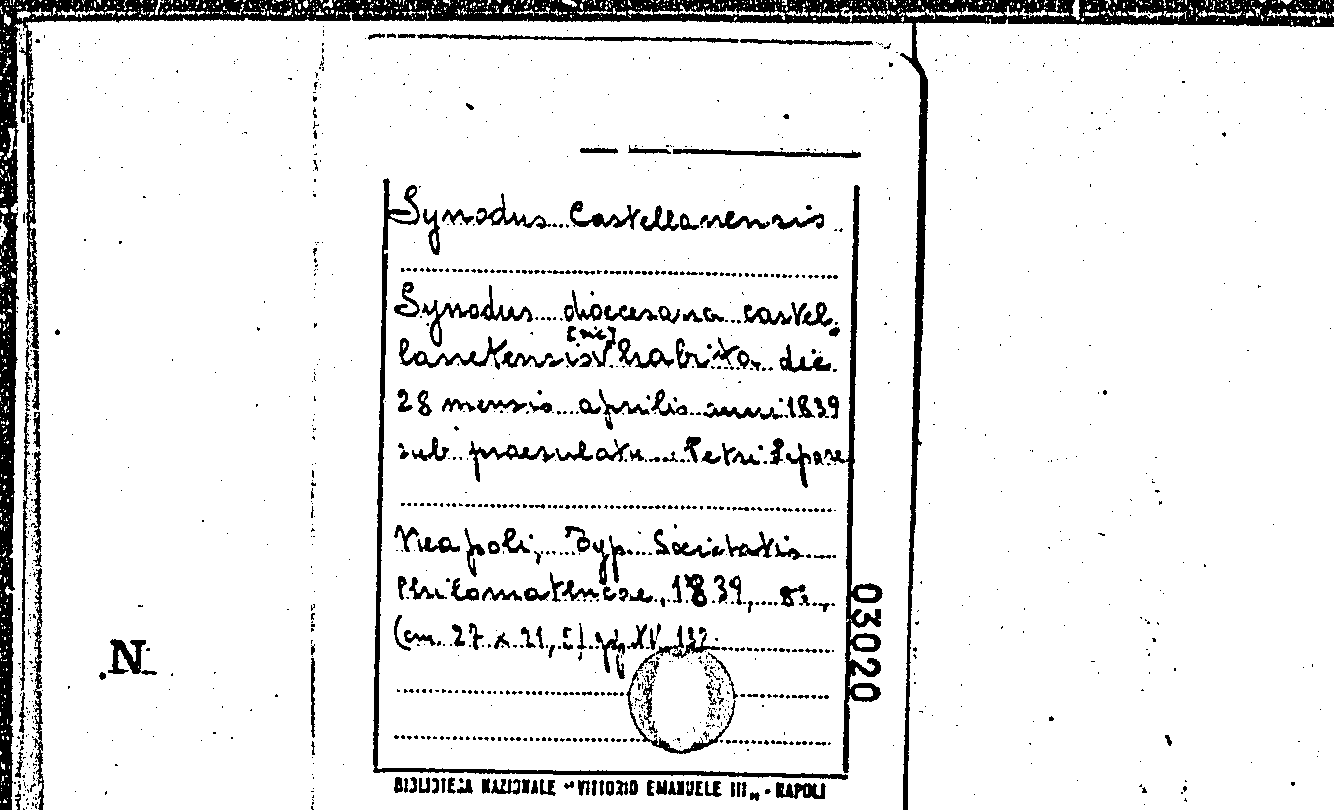 Synodus Castellanensis
Synodus dioecesana castel-
lanetensis [sic] habita die
28 mensis aprilis anni 1839
sub praesulatu Petri Lepore
Neapoli, Typ. Societatis
Philomathicae, 1839, 8°,
(cm. 27 x 21, 5) pp. XV, 132.
03020
.N.
BIBLIOTECA NAZIONALE "VITTORIO EMANUELE III" - NAPOLI